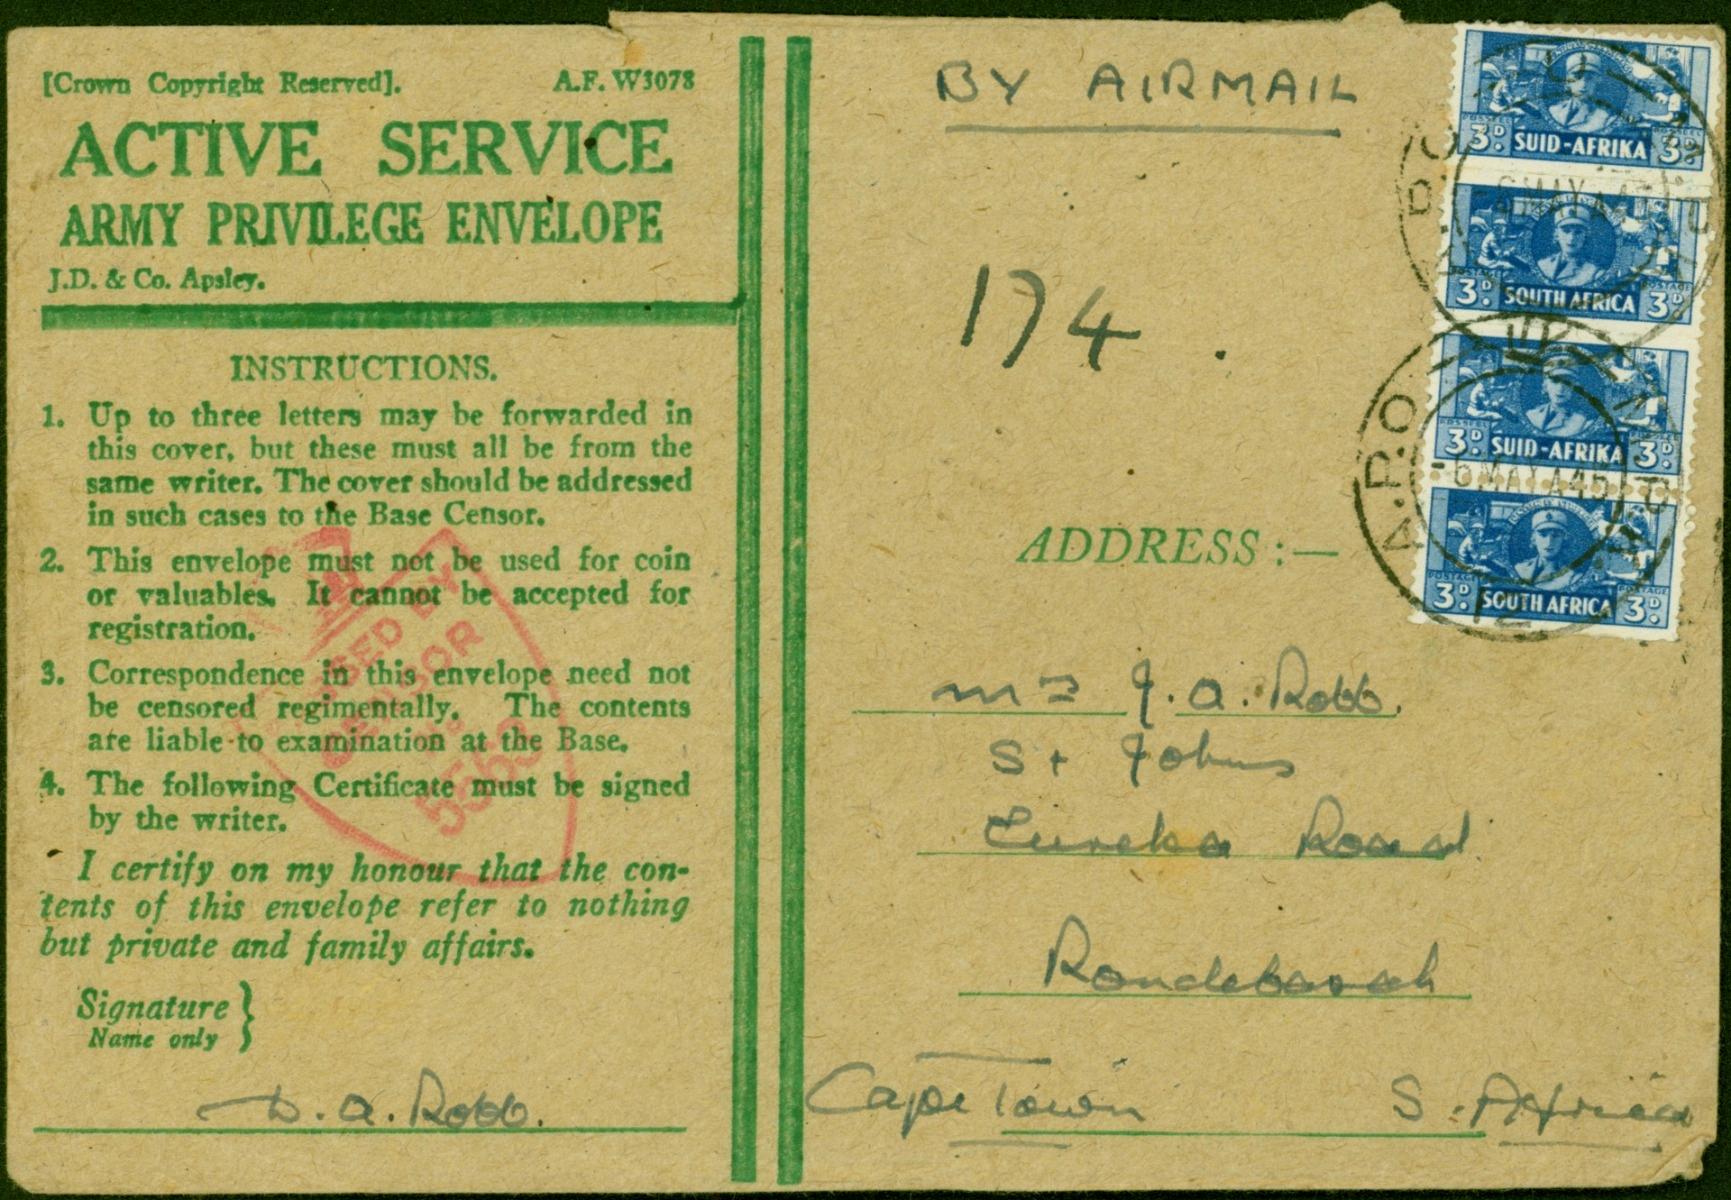 [Crown Copyright Reserved]. A.F. W3078
ACTIVE SERVICE
ARMY PRIVILEGE ENVELOPE
J.D. & Co. Apsley.
INSTRUCTIONS.
1. Up to three letters may be forwarded in
this cover, but these must all be from the
same writer. The cover should be addressed
in such cases to the Base Censor.
2. This envelope must not be used for coin
or valuables. It cannot be accepted for
registration.
3. Correspondence in this envelope need not
be censored regimentally. The contents
are liable to examination at the Base.
4. The following Certificate must be signed
by the writer.
I certify on my honour that the con-
tents of this envelope refer to nothing
but private and family affairs.
Signature }
Name only
D. A. Robb.
BY
CENSOR
5563
BY AIRMAIL
174
ADDRESS :—
J. A. Robb.
St Johns
Eureka Road
Rondebosch
Cape Town S. Africa
3D. SUID-AFRIKA 3D.
POSTAGE POSTAGE
3D. SOUTH AFRICA 3D.
POSSEEL POSSEEL
3D. SUID-AFRIKA 3D.
POSTAGE POSTAGE
3D. SOUTH AFRICA 3D.
A.P.O.
-6 MAY A 45